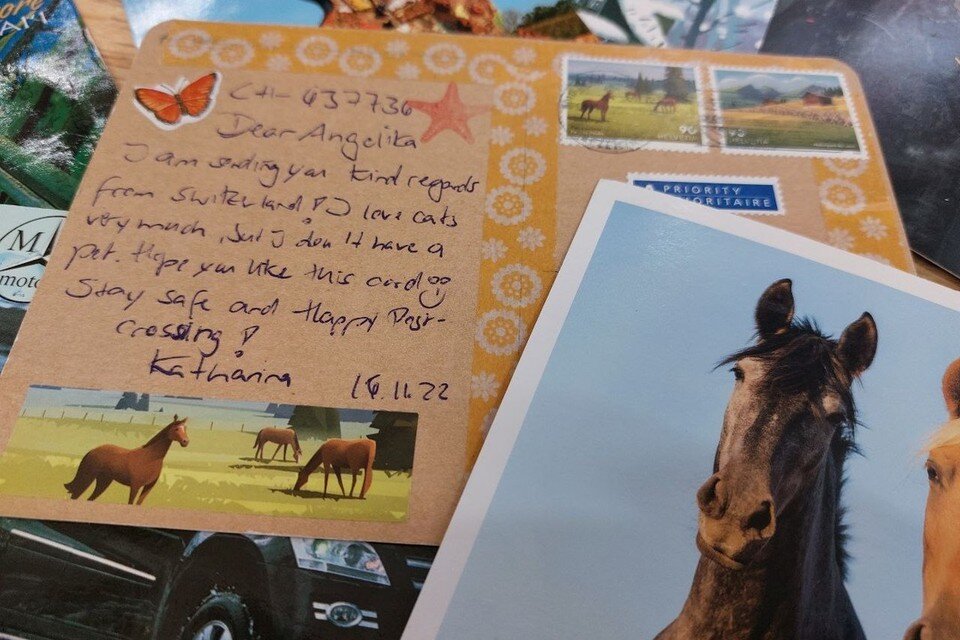 CH-437736
Dear Angelika
I am sending you kind regards
from Switzerland! I love cats
very much, but I don't have a
pet. Hope you like this card
Stay safe and Happy Post-
crossing!
Katharina 16.11.22
90
PRIORITY
PRIORITAIRE
M
moto